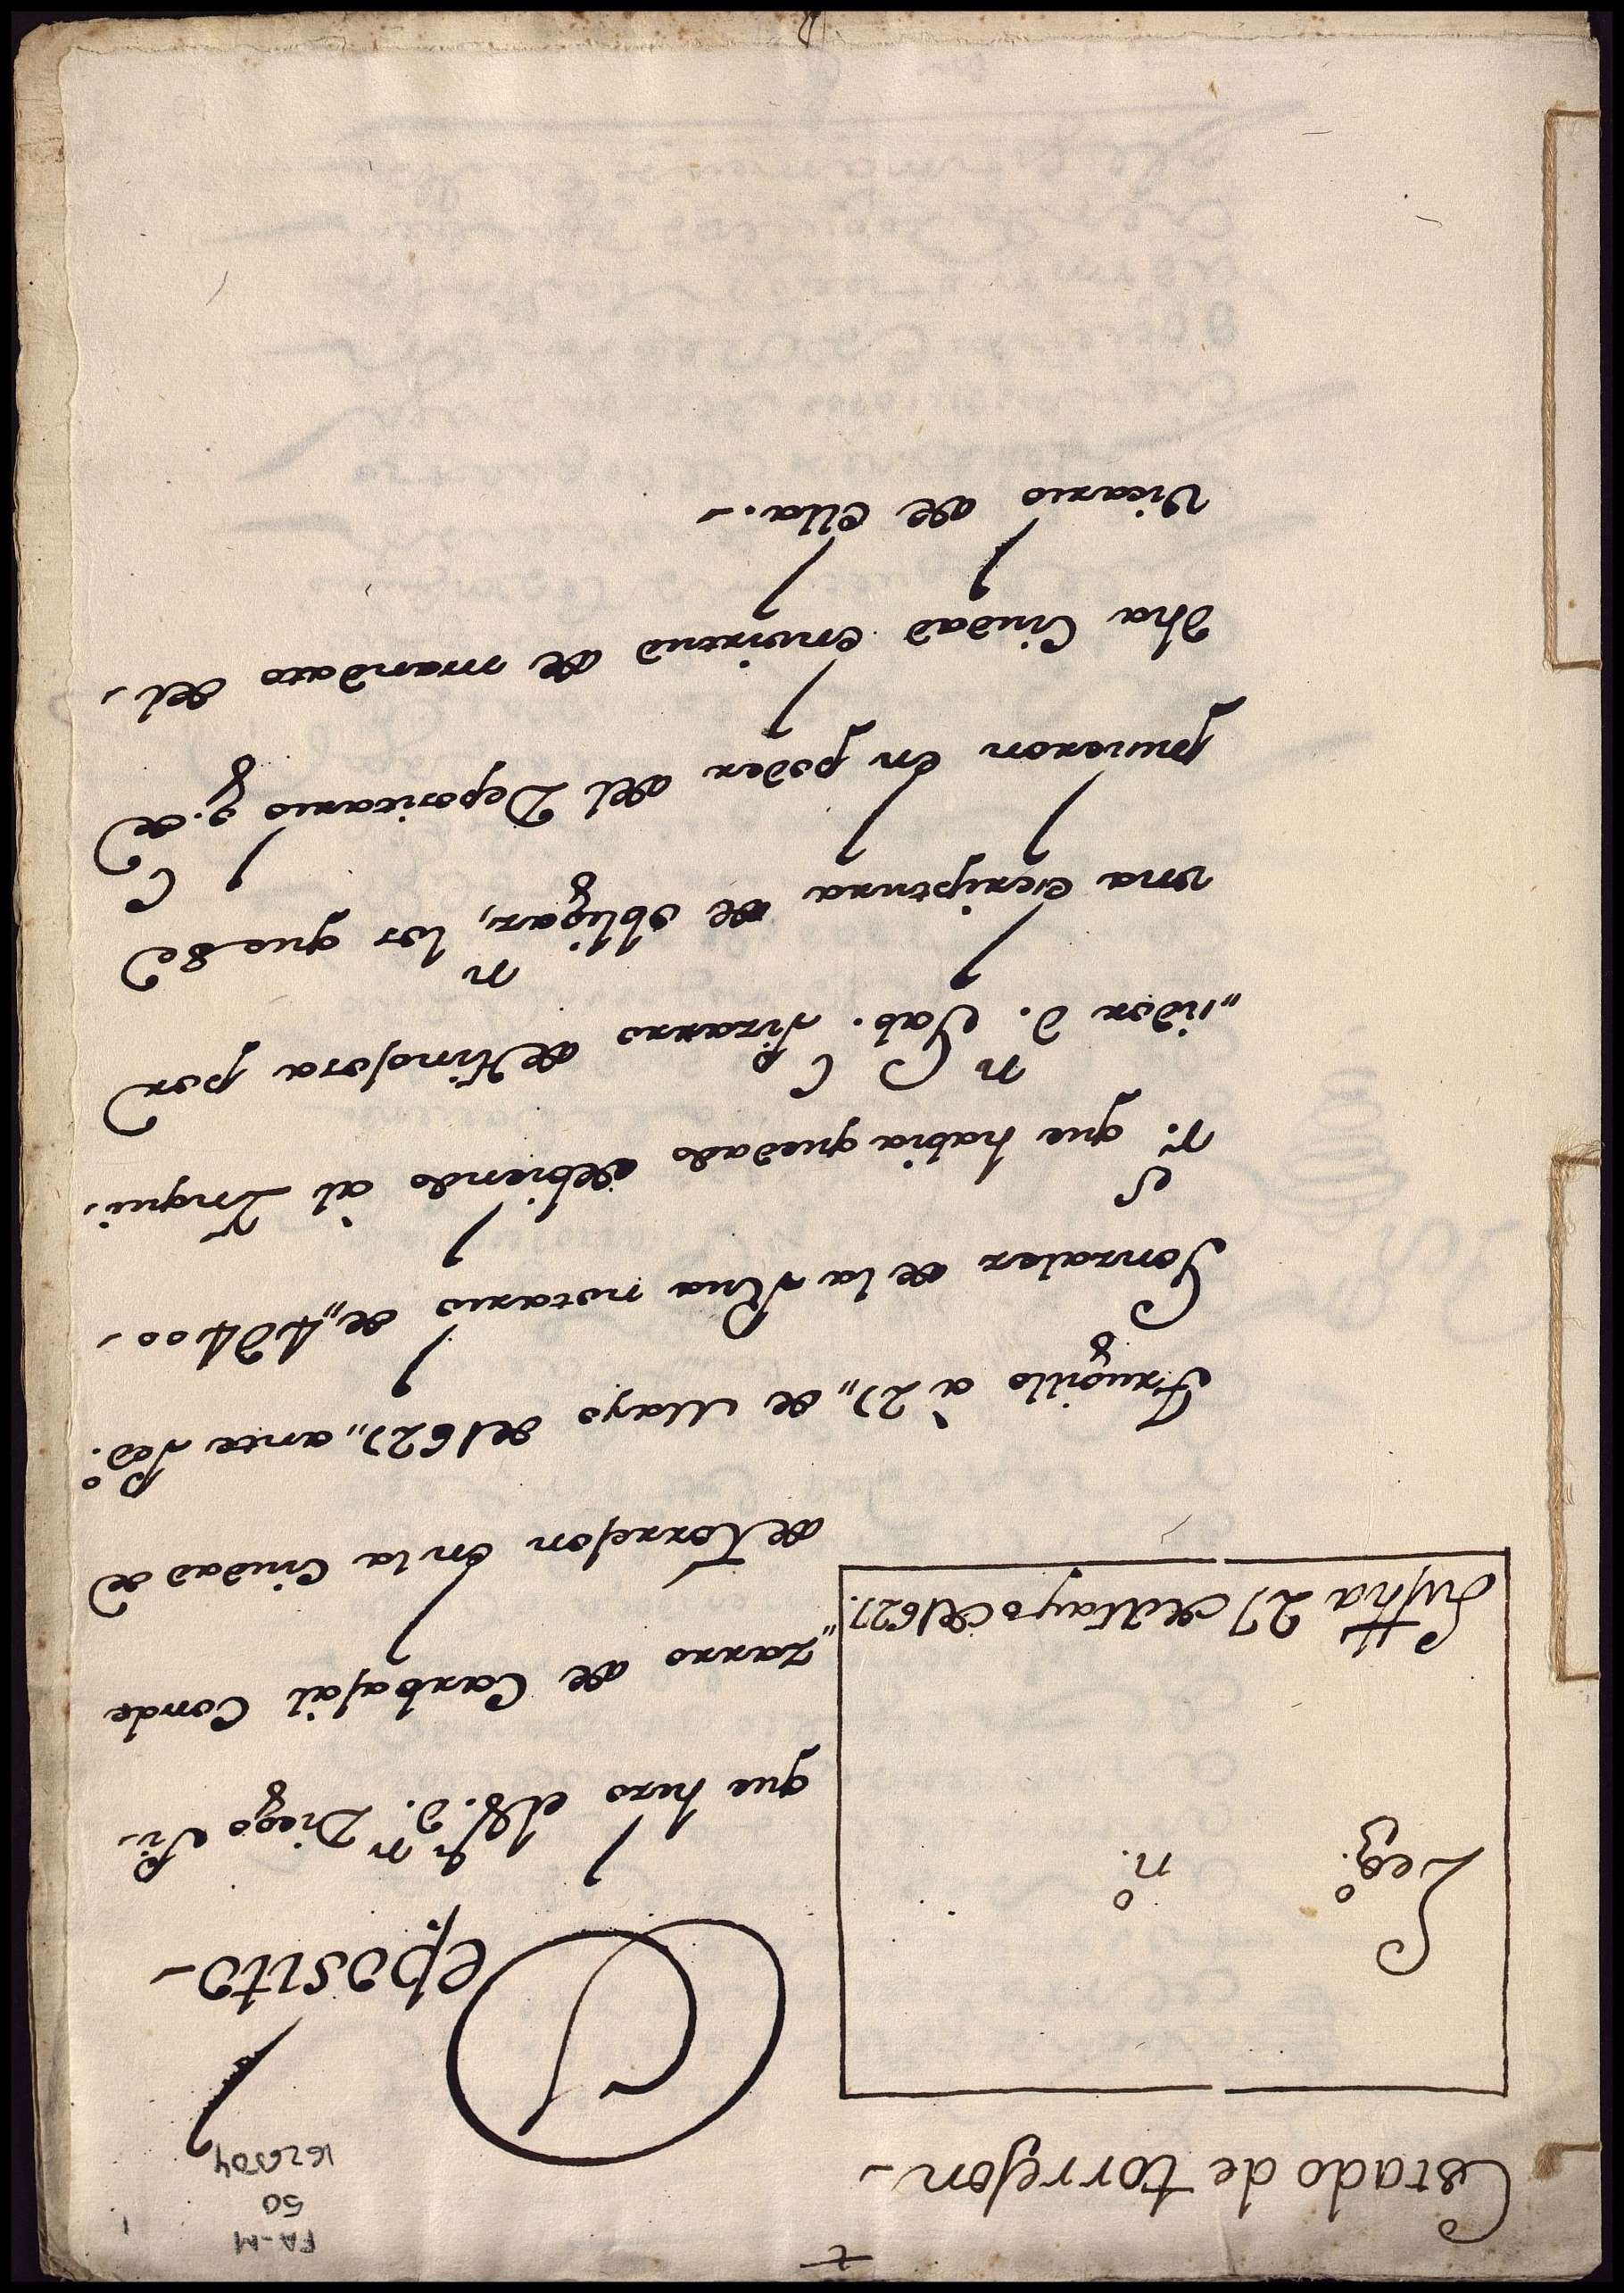 FA-M
50
1
1626504
Estado de torrejon-
Leg.º nº.
Su fha 27 de Mayo de 1627.
Deposito-
que hizo el S.r D.n Diego Pi-
"zarro de Carbajal Conde
de Torrejon en la Ciudad de
Truxillo à 27,, de Mayo de 1627,, ante Pedº.
Gonzalez de la Rua notario de,, 4d400-
rs. que habia quedado debiendo al Inqui-
"sidor D.n Gab.l Pizarro de Hinojosa por
una escriptura de obligaz,n los que se
pusieron en poder del Depositario g.l de
dha Ciudad en virtud de mandato del-
Vicario de ella.-